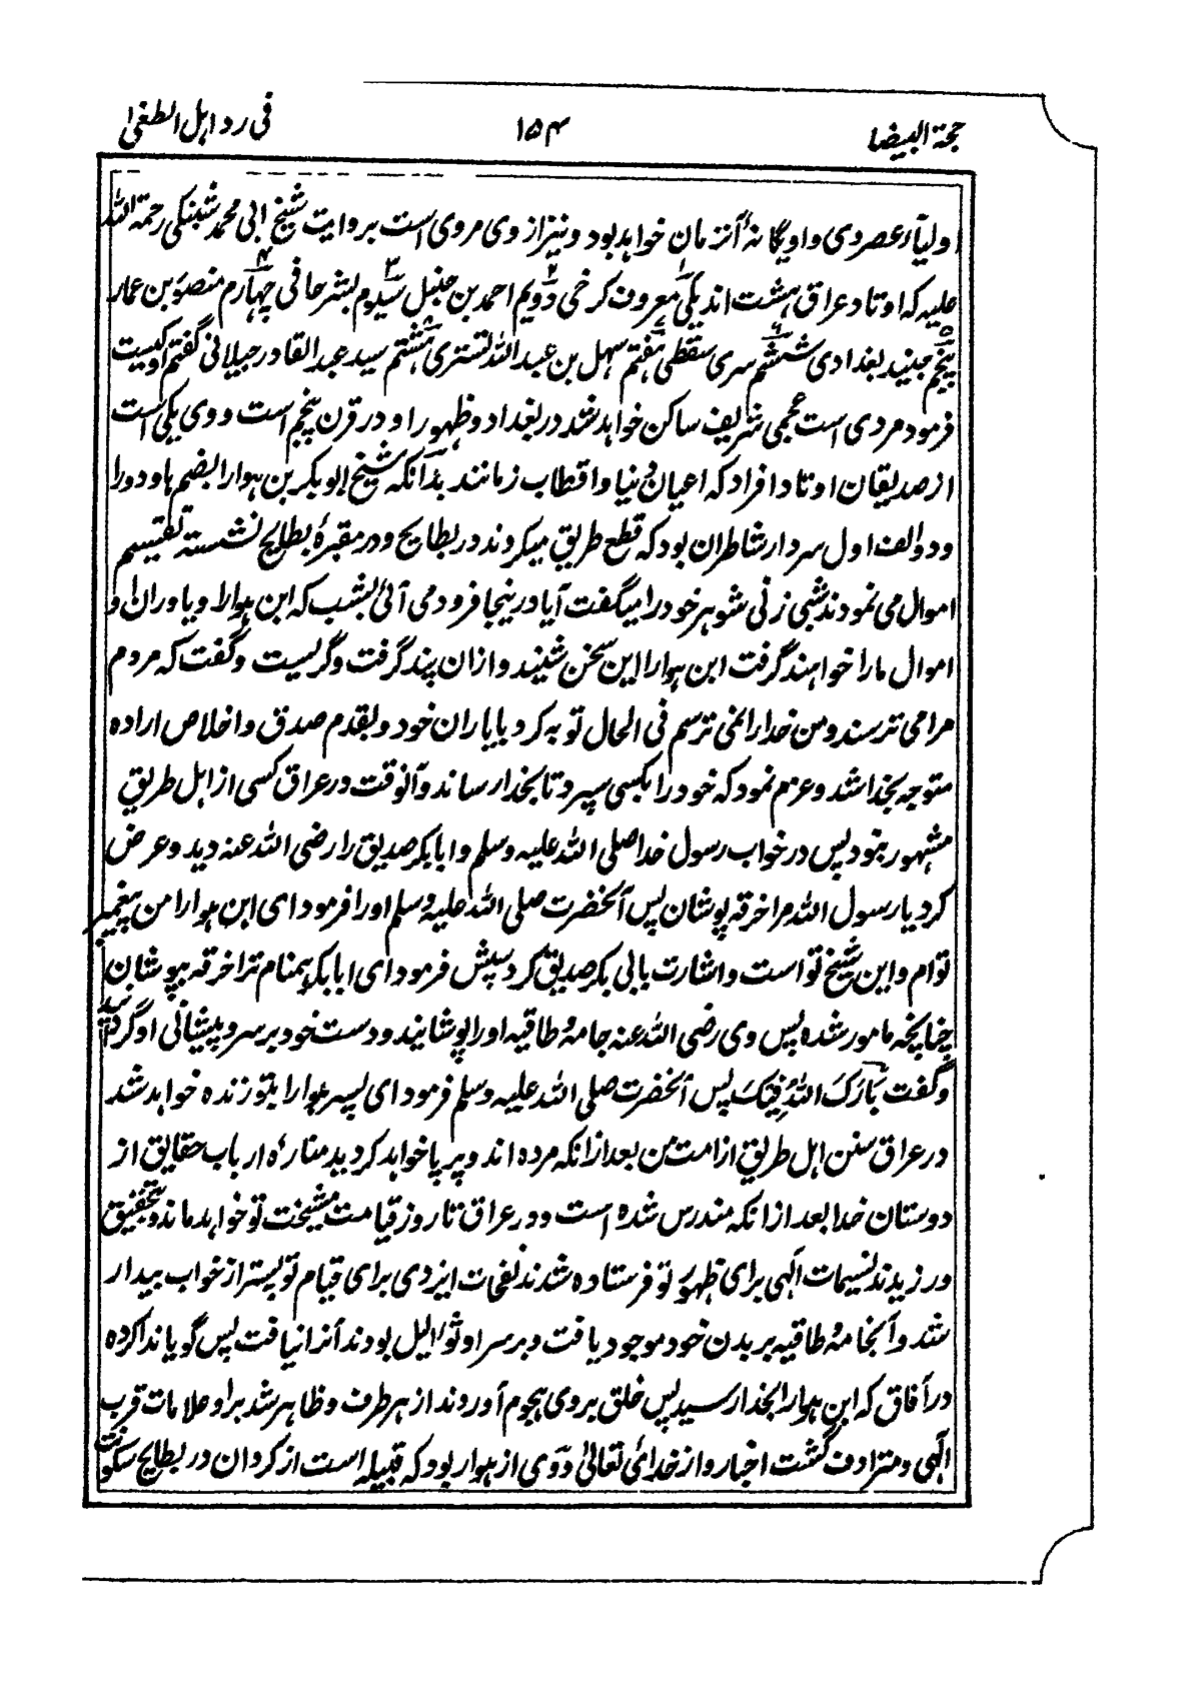 حجة البیضا ۱۵۴ فی رد اہل الطغیٰ
اولیآء عصر وی و او یگانۂ آنزمان خواہد بود و نیز از وی مروی است بروایت شیخ ابی محمد شنبکی رحمة اللہ
علیہ کہ اوتاد عراق ہشت اند یکی معروف کرخی دویم احمد بن حنبل سیوم بشر حافی چہارم منصور بن عمار
پنجم جنید بغدادی ششم سری سقطی ہفتم سہل بن عبد اللہ تستری ہشتم سید عبد القادر جیلانی گفتم او کیست
فرمود مردی است عجمی شریف ساکن خواہد شد در بغداد و ظہور او در قرن پنجم است و وی یکی است
از صدیقان اوتاد افراد کہ اعیان دنیا و اقطاب زمانند بدانکہ شیخ ابو بکر بن ہوارا بضم ہا و دو را
و دو الف اول سردار شاطران بود کہ قطع طریق میکردند در بطایح و در مقبرۂ بطایح نشستہ تقسیم
اموال می نمودند شبی زنی شوہر خود را میگفت آیا در ینجا فرود می آئی بشب کہ ابن ہوارا و یاوران او
اموال ما را خواہند گرفت ابن ہوارا این سخن شنید و ازان پند گرفت و گریست و گفت کہ مردم
مرا می ترسند و من خدا را نمی ترسم فی الحال توبہ کرد با یاران خود و بقدم صدق و اخلاص ارادہ
متوجہ بخدا شد و عزم نمود کہ خود را بکسی سپرد تا بخدا رساند و آنوقت در عراق کسی از اہل طریق
مشہور نبود پس در خواب رسول خدا صلی اللہ علیہ وسلم و ابا بکر صدیق را رضی اللہ عنہ دید و عرض
کرد یا رسول اللہ مرا خرقہ پوشان پس آنحضرت صلی اللہ علیہ وسلم او را فرمود ای ابن ہوارا من پیغمبر
توام و این شیخ تو است و اشارت بابی بکر صدیق کرد سپش فرمود ای ابا بکر ہمنام ترا خرقہ بپوشان
چنانچہ مامور شدہ پس وی رضی اللہ عنہ جامہ و طاقیہ او را پوشانید و دست خود بر سر و پیشانی او گردانید
و گفت بَارَکَ اللہُ فِیکَ پس آنحضرت صلی اللہ علیہ وسلم فرمود ای پسر ہوارا بتو زندہ خواہد شد
در عراق سنن اہل طریق از امت من بعد ازانکہ مردہ اند و برپا خواہد گردید منارۂ ارباب حقایق از
دوستان خدا بعد ازانکہ مندرس شدہ است و در عراق تا روز قیامت مشیخت تو خواہد ماند و بتحقیق
ورزیدند نسیمات الٰہی برای ظہور تو فرستادہ شدند نفحات ایزدی برای قیام تو پستر از خواب بیدار
شد و آنجامہ و طاقیہ بر بدن خود موجود یافت و بر سر او ثوالیل بودند آنرا نیافت پس گویا ندا کردہ
در آفاق کہ ابن ہوارا بخدا رسید پس خلق بر وی ہجوم آوردند از ہر طرف و ظاہر شد براو علامات قرب
الٰہی و مترادف گشت اخبار و از خدای تعالیٰ و وی از ہوار بود کہ قبیلہ است از کردان در بطایح سکونت